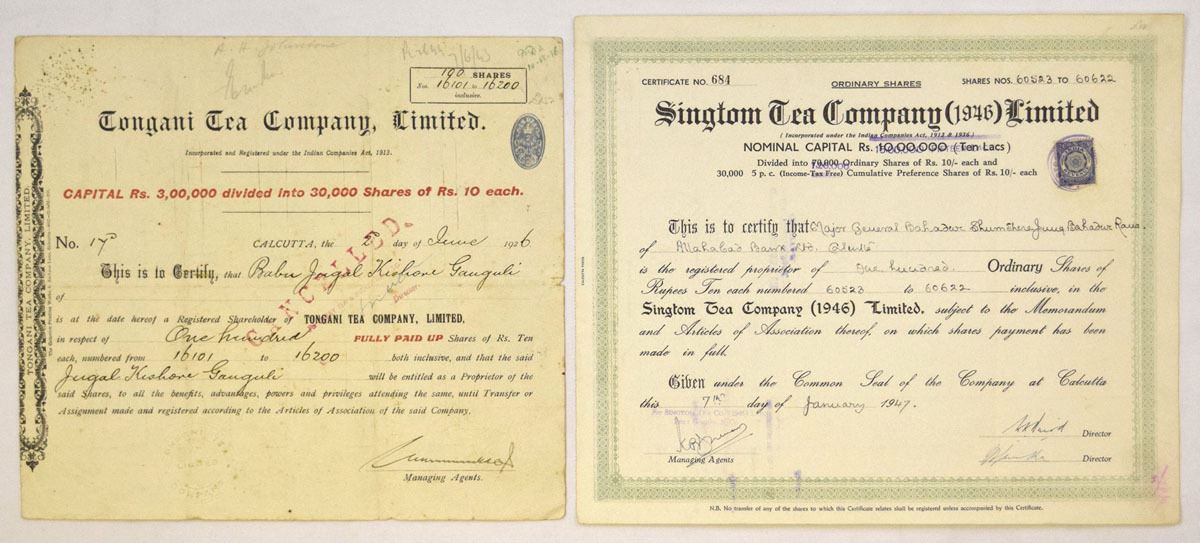 100 SHARES
Nos. 16101 to 16200
inclusive.
Tongani Tea Company, Limited.
Incorporated and Registered under the Indian Companies Act, 1913.
CAPITAL Rs. 3,00,000 divided into 30,000 Shares of Rs. 10 each.
CALCUTTA, the day of June 1926
This is to Certify, that Babu Jugal Kishore Ganguli
of
is at the date hereof a Registered Shareholder of TONGANI TEA COMPANY, LIMITED,
in respect of One hundred FULLY PAID UP Shares of Rs. Ten
each, numbered from 16101 to 16200 both inclusive, and that the said
Jugal Kishore Ganguli will be entitled as a Proprietor of the
said Shares, to all the benefits, advantages, powers and privileges attending the same, until Transfer or
Assignment made and registered according to the Articles of Association of the said Company.
Managing Agents.
CANCELLED.
TONGANI TEA COMPANY, LIMITED.
CERTIFICATE NO. 684
ORDINARY SHARES
SHARES NOS. 60523 TO 60622
Singtom Tea Company (1946) Limited
(Incorporated under the Indian Companies Acts, 1913 & 1936)
NOMINAL CAPITAL Rs. 10,00,000 (Ten Lacs)
Divided into 70,000 Ordinary Shares of Rs. 10/- each and
30,000 5 p. c. (Income-Tax Free) Cumulative Preference Shares of Rs. 10/- each
This is to certify that Major General Bahadur Shumshere Jung Bahadur Rana
of Allahabad Bank Ltd.
is the registered proprietor of one hundred. Ordinary Shares of
Rupees Ten each numbered 60523 to 60622 inclusive, in the
Singtom Tea Company (1946) Limited. subject to the Memorandum
and Articles of Association thereof, on which shares payment has been
made in full.
Given under the Common Seal of the Company at Calcutta
this 7th day of January 1947.
Director
Managing Agents
Director
N.B. No transfer of any of the shares to which this Certificate relates shall be registered unless accompanied by this Certificate.